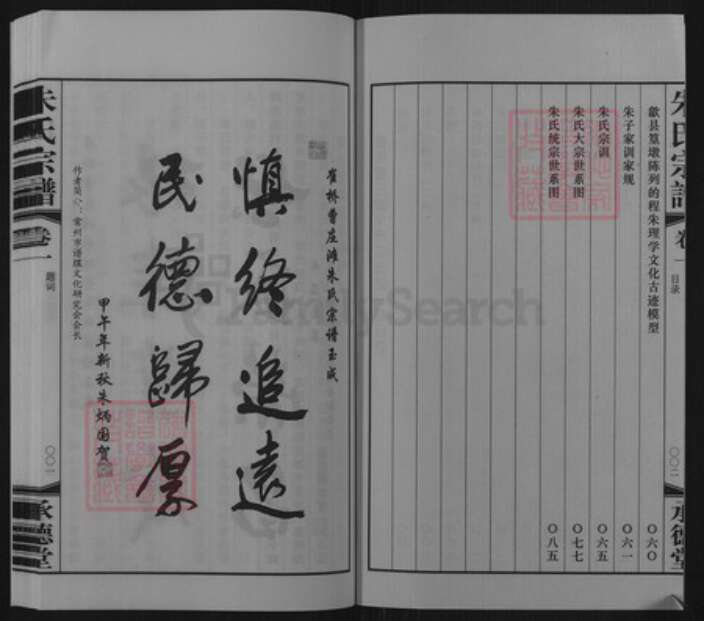 朱氏宗谱
卷一
目录
〇〇二
承德堂
歙县篁墩陈列的程朱理学文化古迹模型 〇六〇
朱子家训家规 〇六一
朱氏宗训 〇六五
朱氏大宗世系图 〇七七
朱氏统宗世系图 〇八五
崔桥曹庄滩朱氏宗谱玉成
慎终追远
民德歸厚
甲午年新秋朱炳国贺
作者简介：常州市谱牒文化研究会会长
朱氏宗譜
卷一
题词
〇〇一
承德堂
FamilySearch